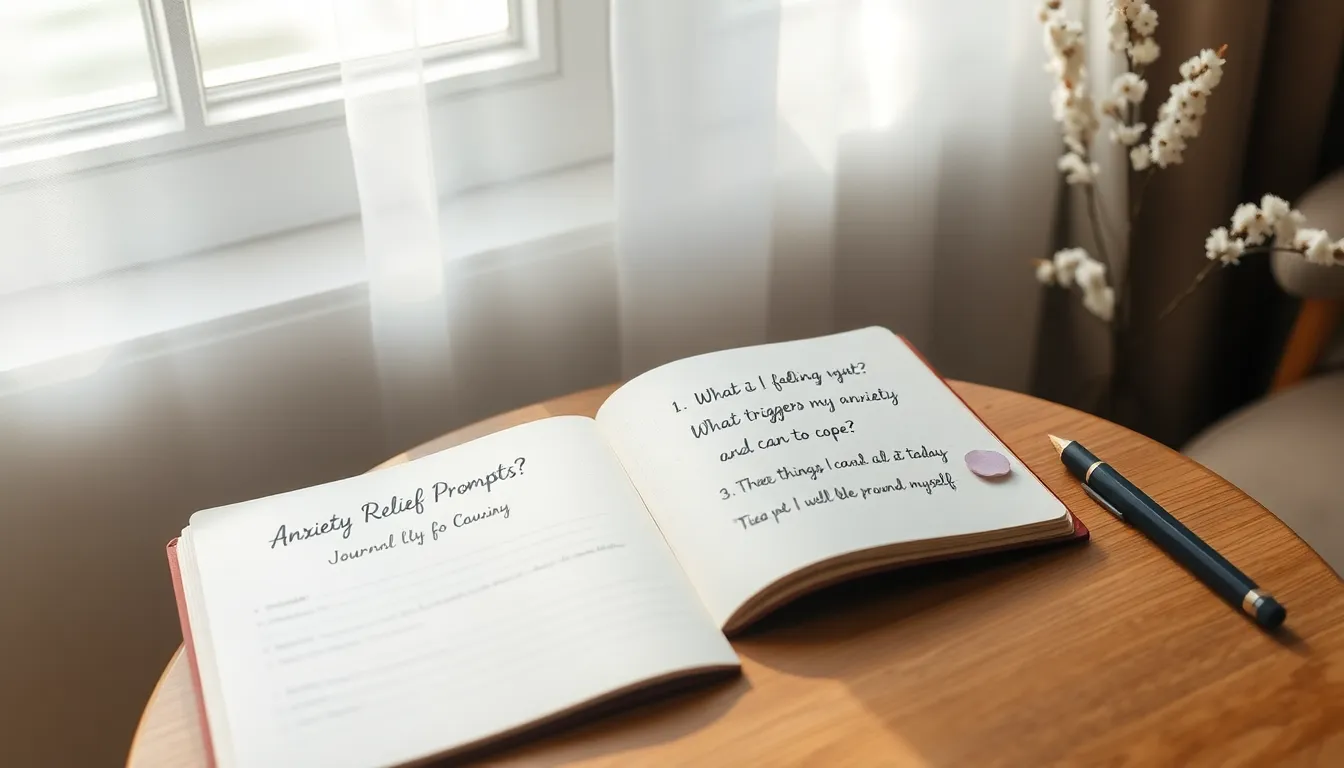 Anxiety Relief Prompts?
Journal Lly fo Causiny
1. What a I fading vgut?
What triggers my anxiety
and can to cope?
3. Thee things I cauk all it today
Tica pat I well ble pround myself